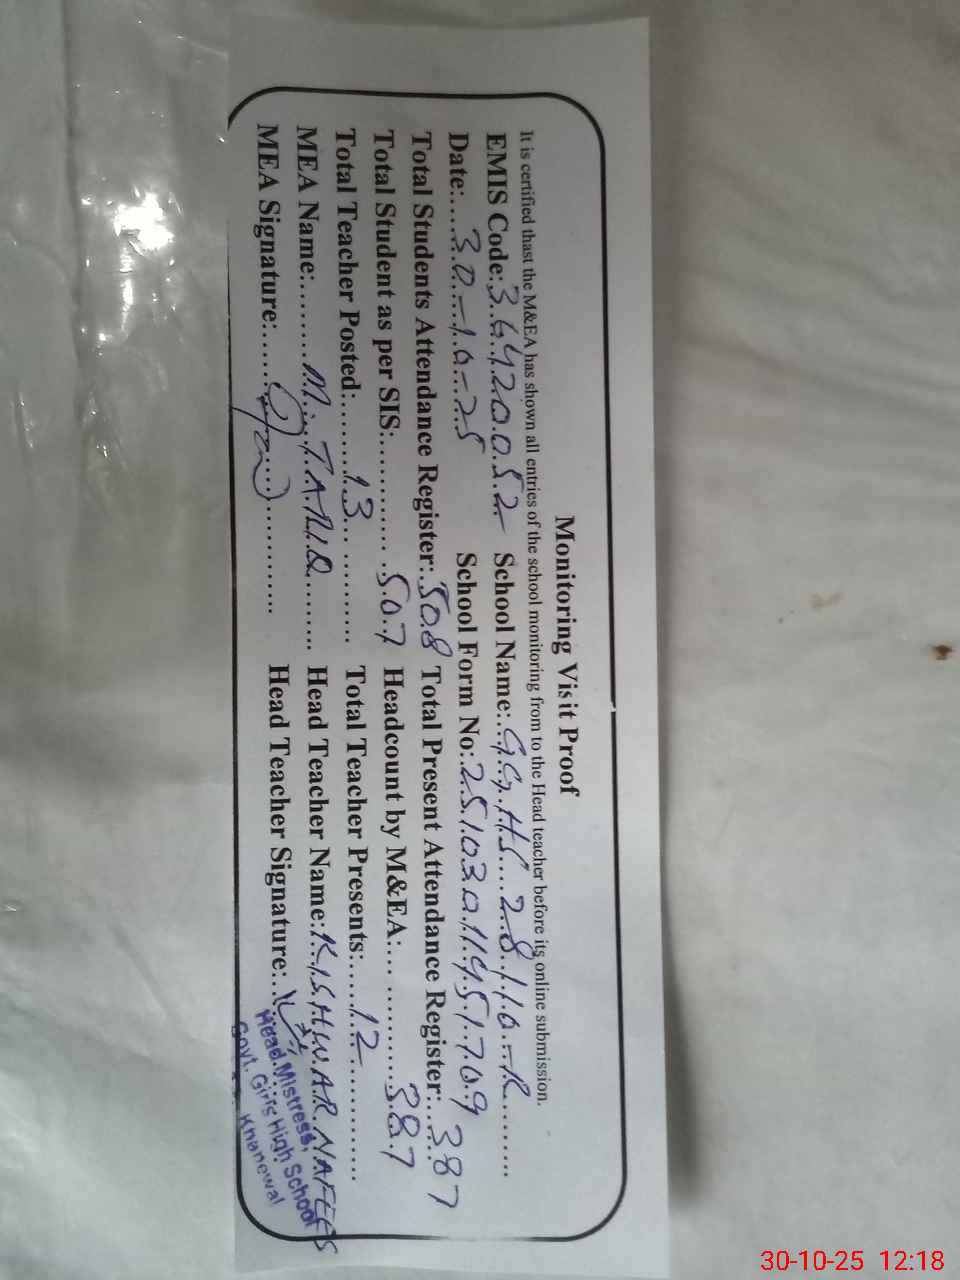 Monitoring Visit Proof
It is certified thast the M&EA has shown all entries of the school monitoring from to the Head teacher before its online submission.
EMIS Code: 36420052 School Name: GGHS 28/10-R
Date: 30-10-25 School Form No: 25103011451709
Total Students Attendance Register: 508 Total Present Attendance Register: 387
Total Student as per SIS: 507 Headcount by M&EA: 387
Total Teacher Posted: 13 Total Teacher Presents: 12
MEA Name: M. TARIQ Head Teacher Name: KISHWAR NAFEES
MEA Signature: Head Teacher Signature:
Head Mistress,
Govt. Girls High School
Khanewal
30-10-25 12:18